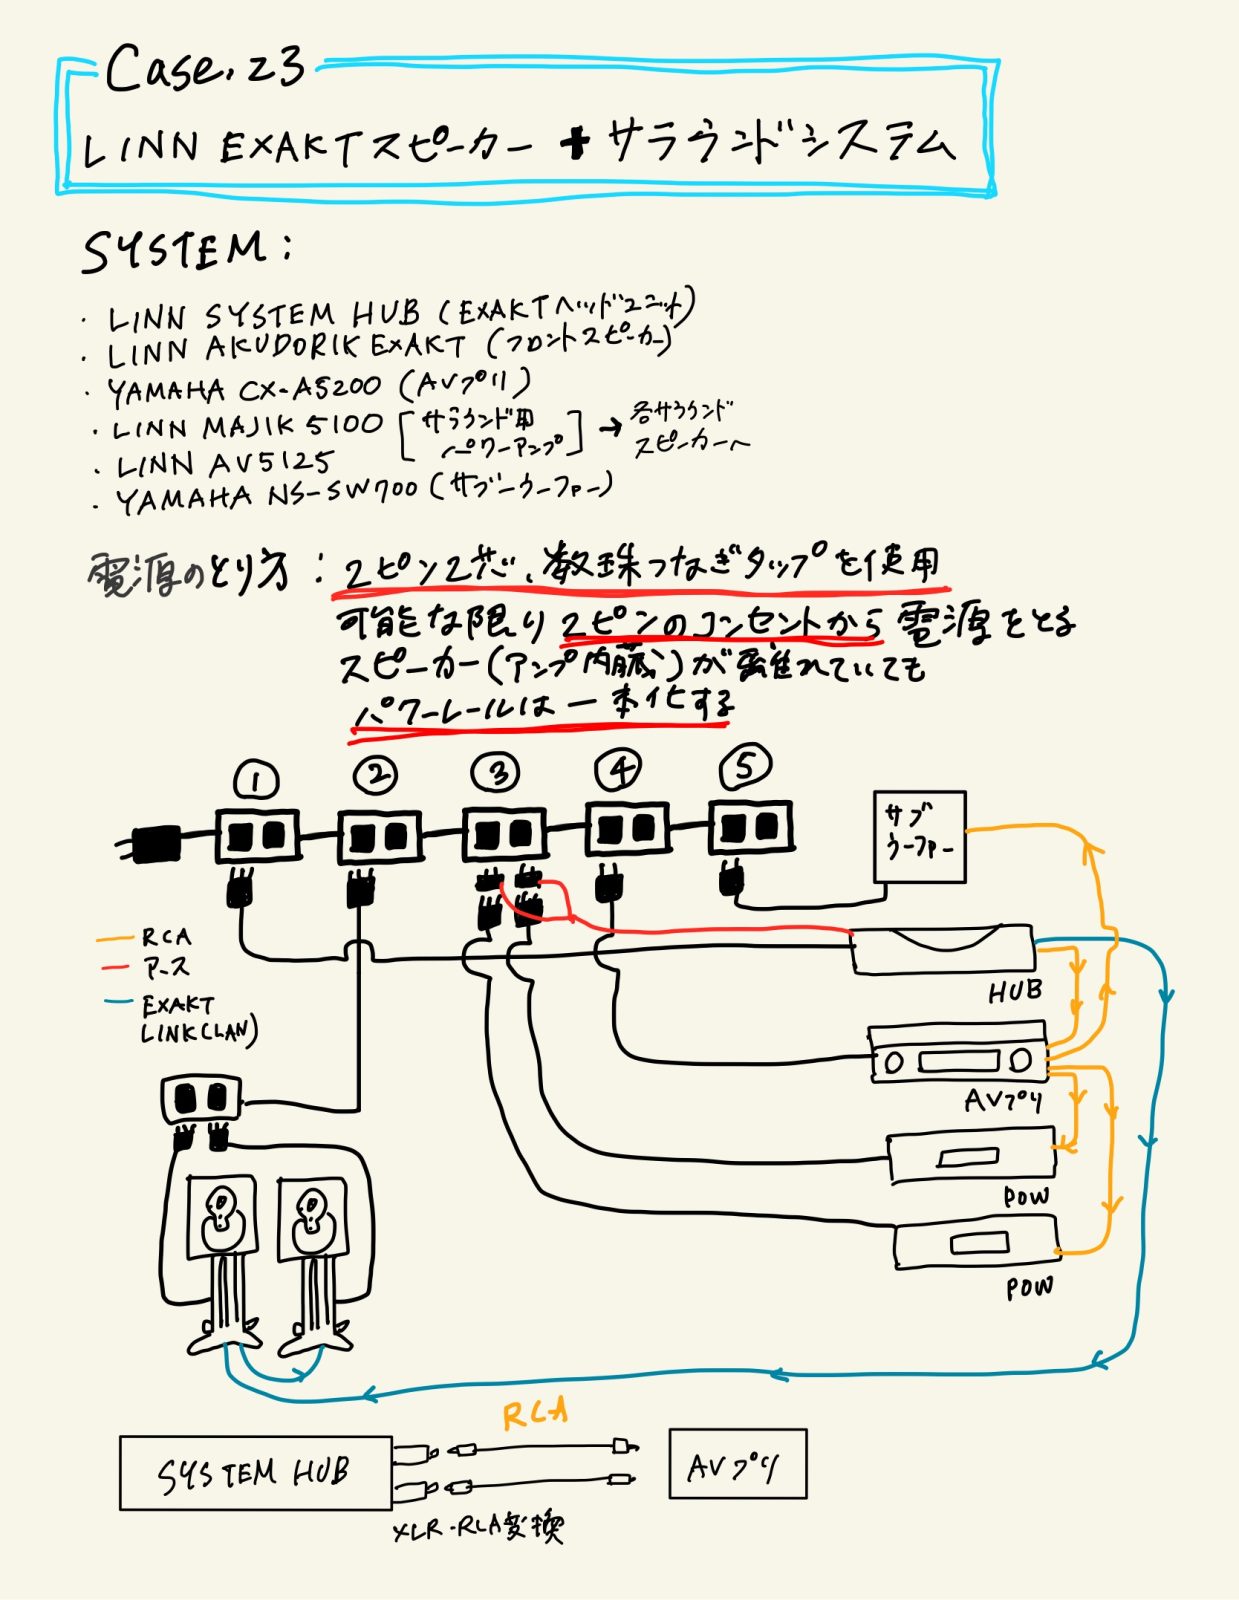 Case.23
LINN EXAKTスピーカー + サラウンドシステム
SYSTEM:
・LINN SYSTEM HUB (EXAKTヘッドユニット)
・LINN AKUDORIK EXAKT (フロントスピーカー)
・YAMAHA CX-A5200 (AVプリ)
・LINN MAJIK 5100 [サラウンド用 → 各サラウンド
パワーアンプ] スピーカーへ
・LINN AV5125
・YAMAHA NS-SW700 (サブーウーファー)
電源のとり方: 2ピン2芯、数珠つなぎタップを使用
可能な限り2ピンのコンセントから電源をとる
スピーカー(アンプ内蔵)が離れていても
パワーレールは一本化する
① ② ③ ④ ⑤
サブ
ウーファー
RCA
アース
EXAKT
LINK(LAN)
HUB
AVプリ
POW
POW
RCA
SYSTEM HUB
AVプリ
XLR-RCA変換